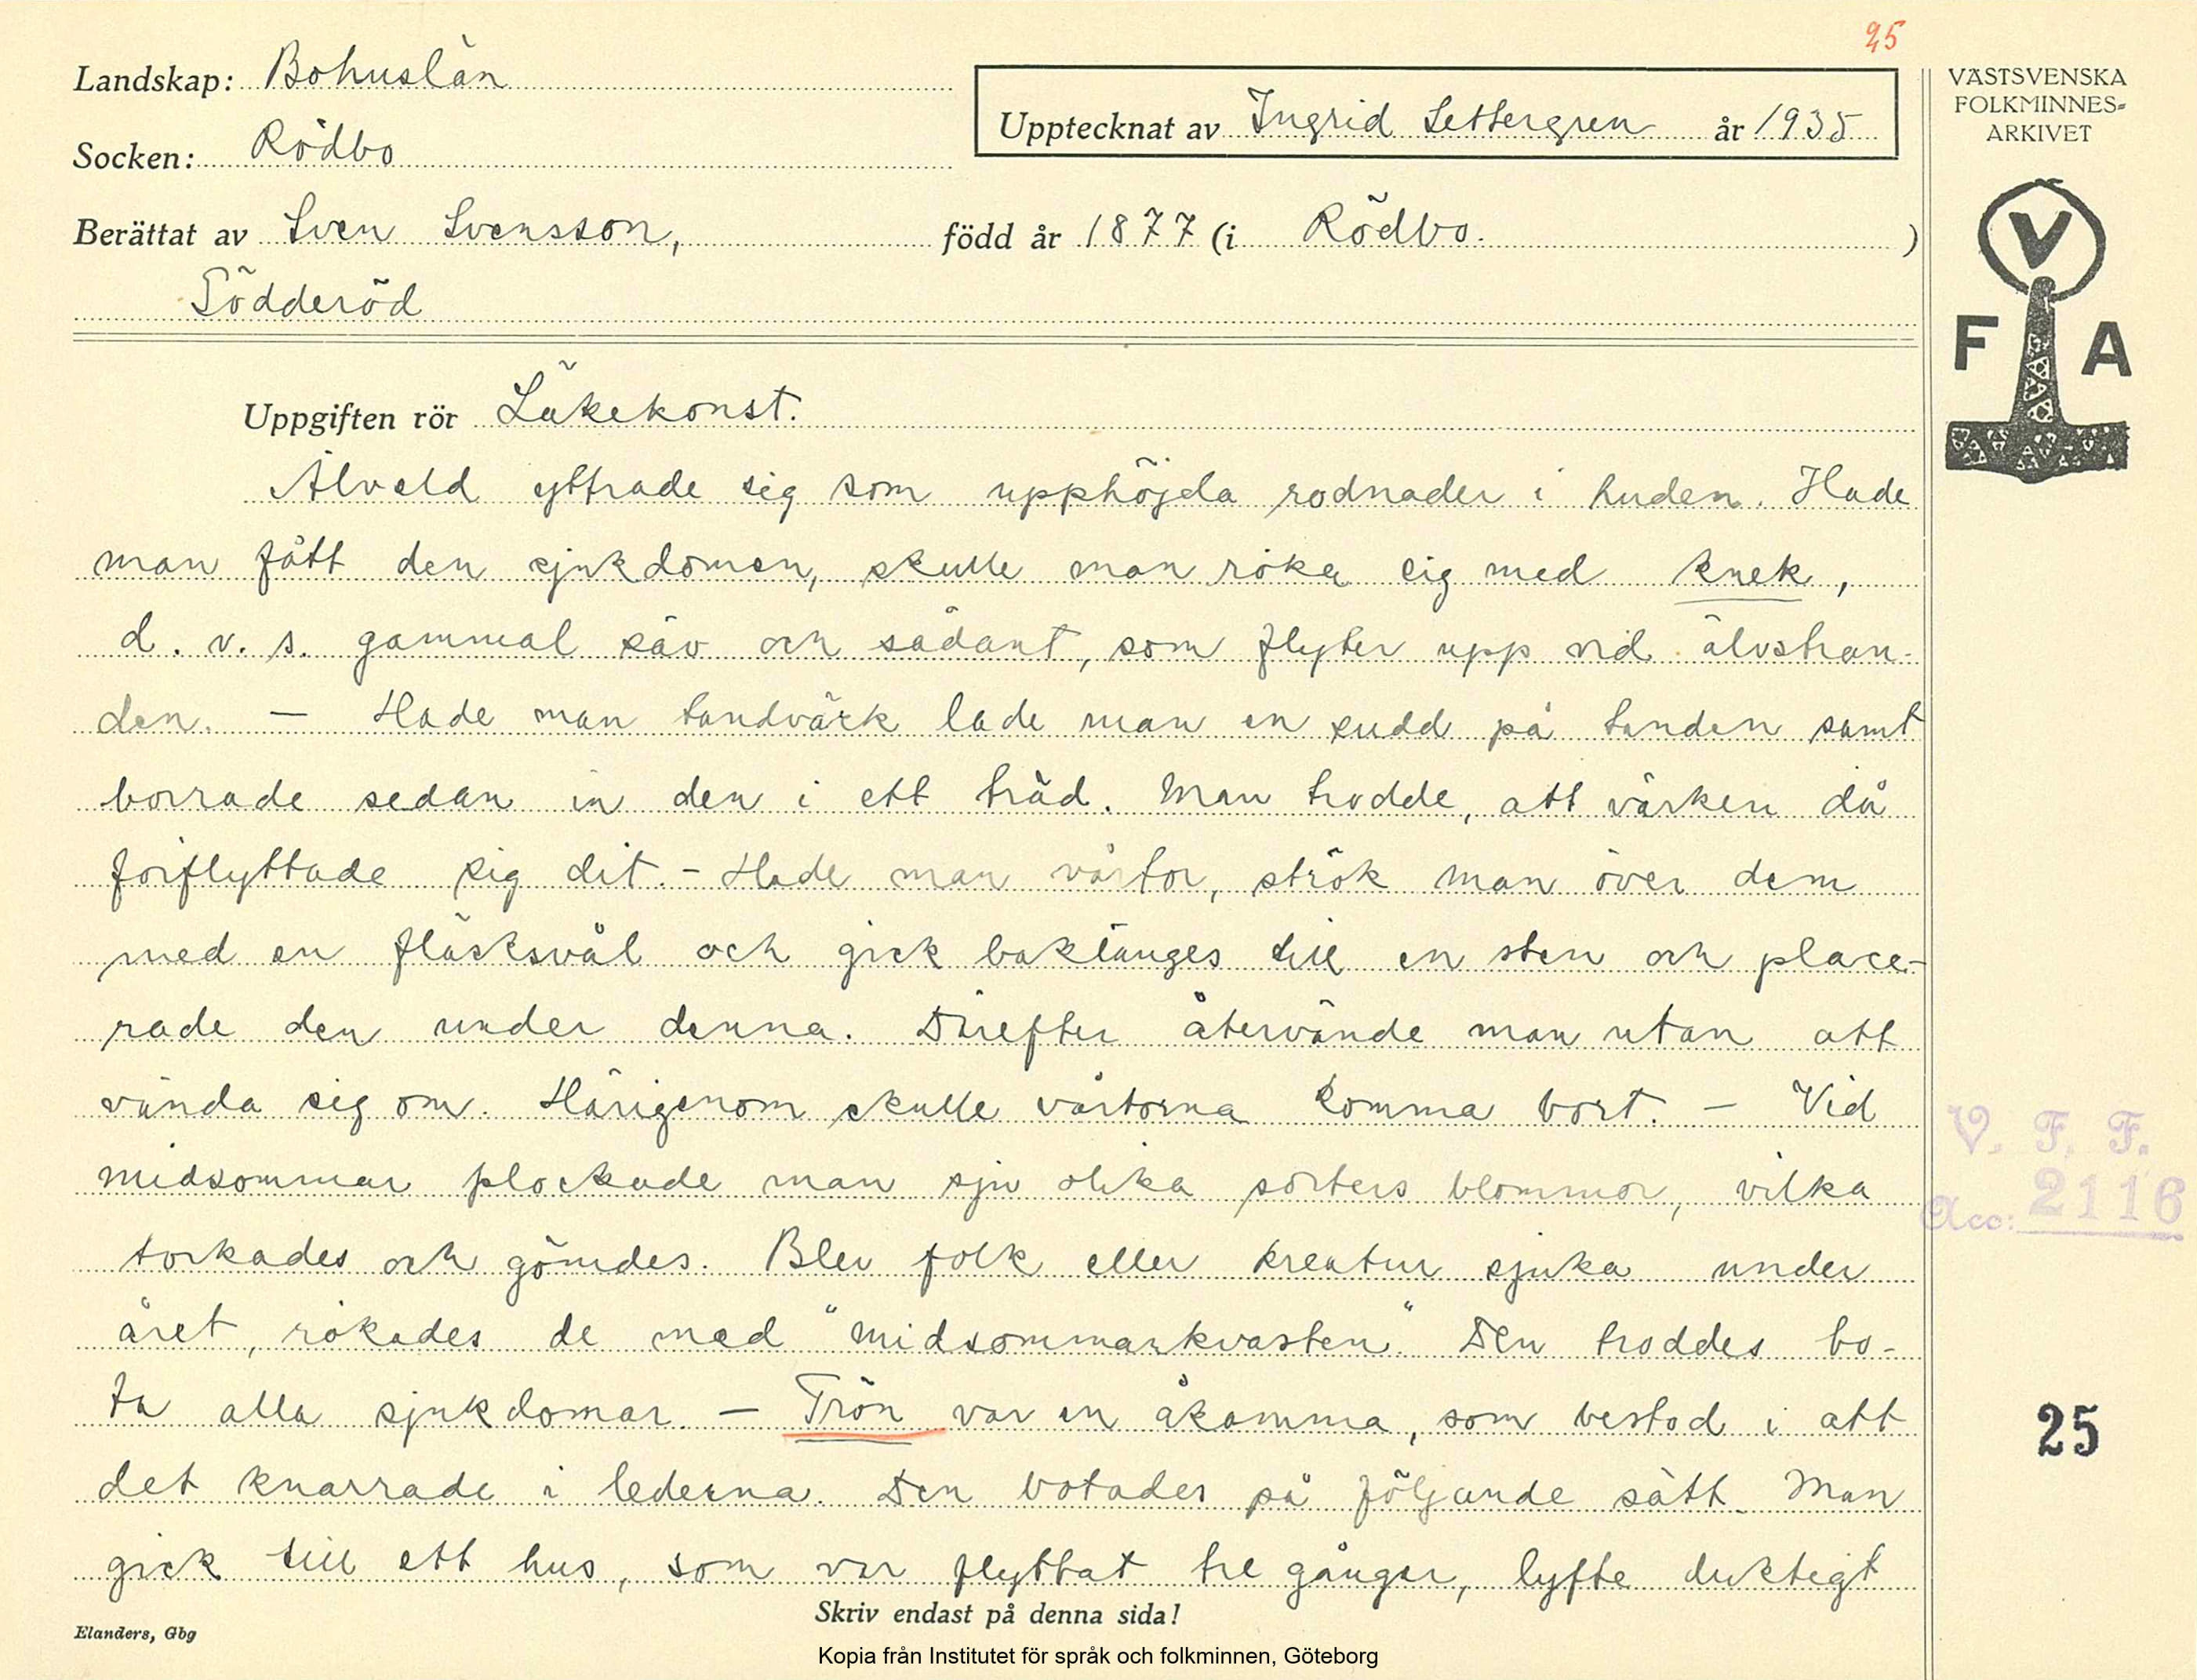 25
Landskap: Bohuslän
Upptecknat av Ingrid Settergren år 1935
VÄSTSVENSKA
FOLKMINNES-
ARKIVET
Socken: Rödbo
Berättat av Sven Svensson, född år 1877 (i Rödbo. )
Södderöd
V
F A
Uppgiften rör Läkekonst.
Älveld yttrade sig som upphöjda rodnader i huden. Hade
man fått den sjukdomen, skulle man röka sig med knek,
d. v. s. gammal säv och sådant, som flyter upp vid älvstran-
den. — Hade man tandvärk lade man en sudd på tanden samt
borrade sedan in den i ett träd. Man trodde, att värken då
förflyttade sig dit. - Hade man vårtor, strök man över dem
med en fläsksvål och gick baklänges till en sten och place-
rade den under denna. Därefter återvände man utan att
vända sig om. Härigenom skulle vårtorna komma bort. — Vid
midsommar plockade man sju olika sorters blommor, vilka
torkades och gömdes. Blev folk eller kreatur sjuka under
året, rökades de med "midsommarkvasten." Den troddes bo-
ta alla sjukdomar. — Trön var en åkomma, som bestod i att
det knarrade i lederna. Den botades på följande sätt. Man
gick till ett hus, som var flyttat tre gånger, lyfte duktigt
V. F. F.
Acc: 2116
25
Skriv endast på denna sida!
Elanders, Gbg
Kopia från Institutet för språk och folkminnen, Göteborg